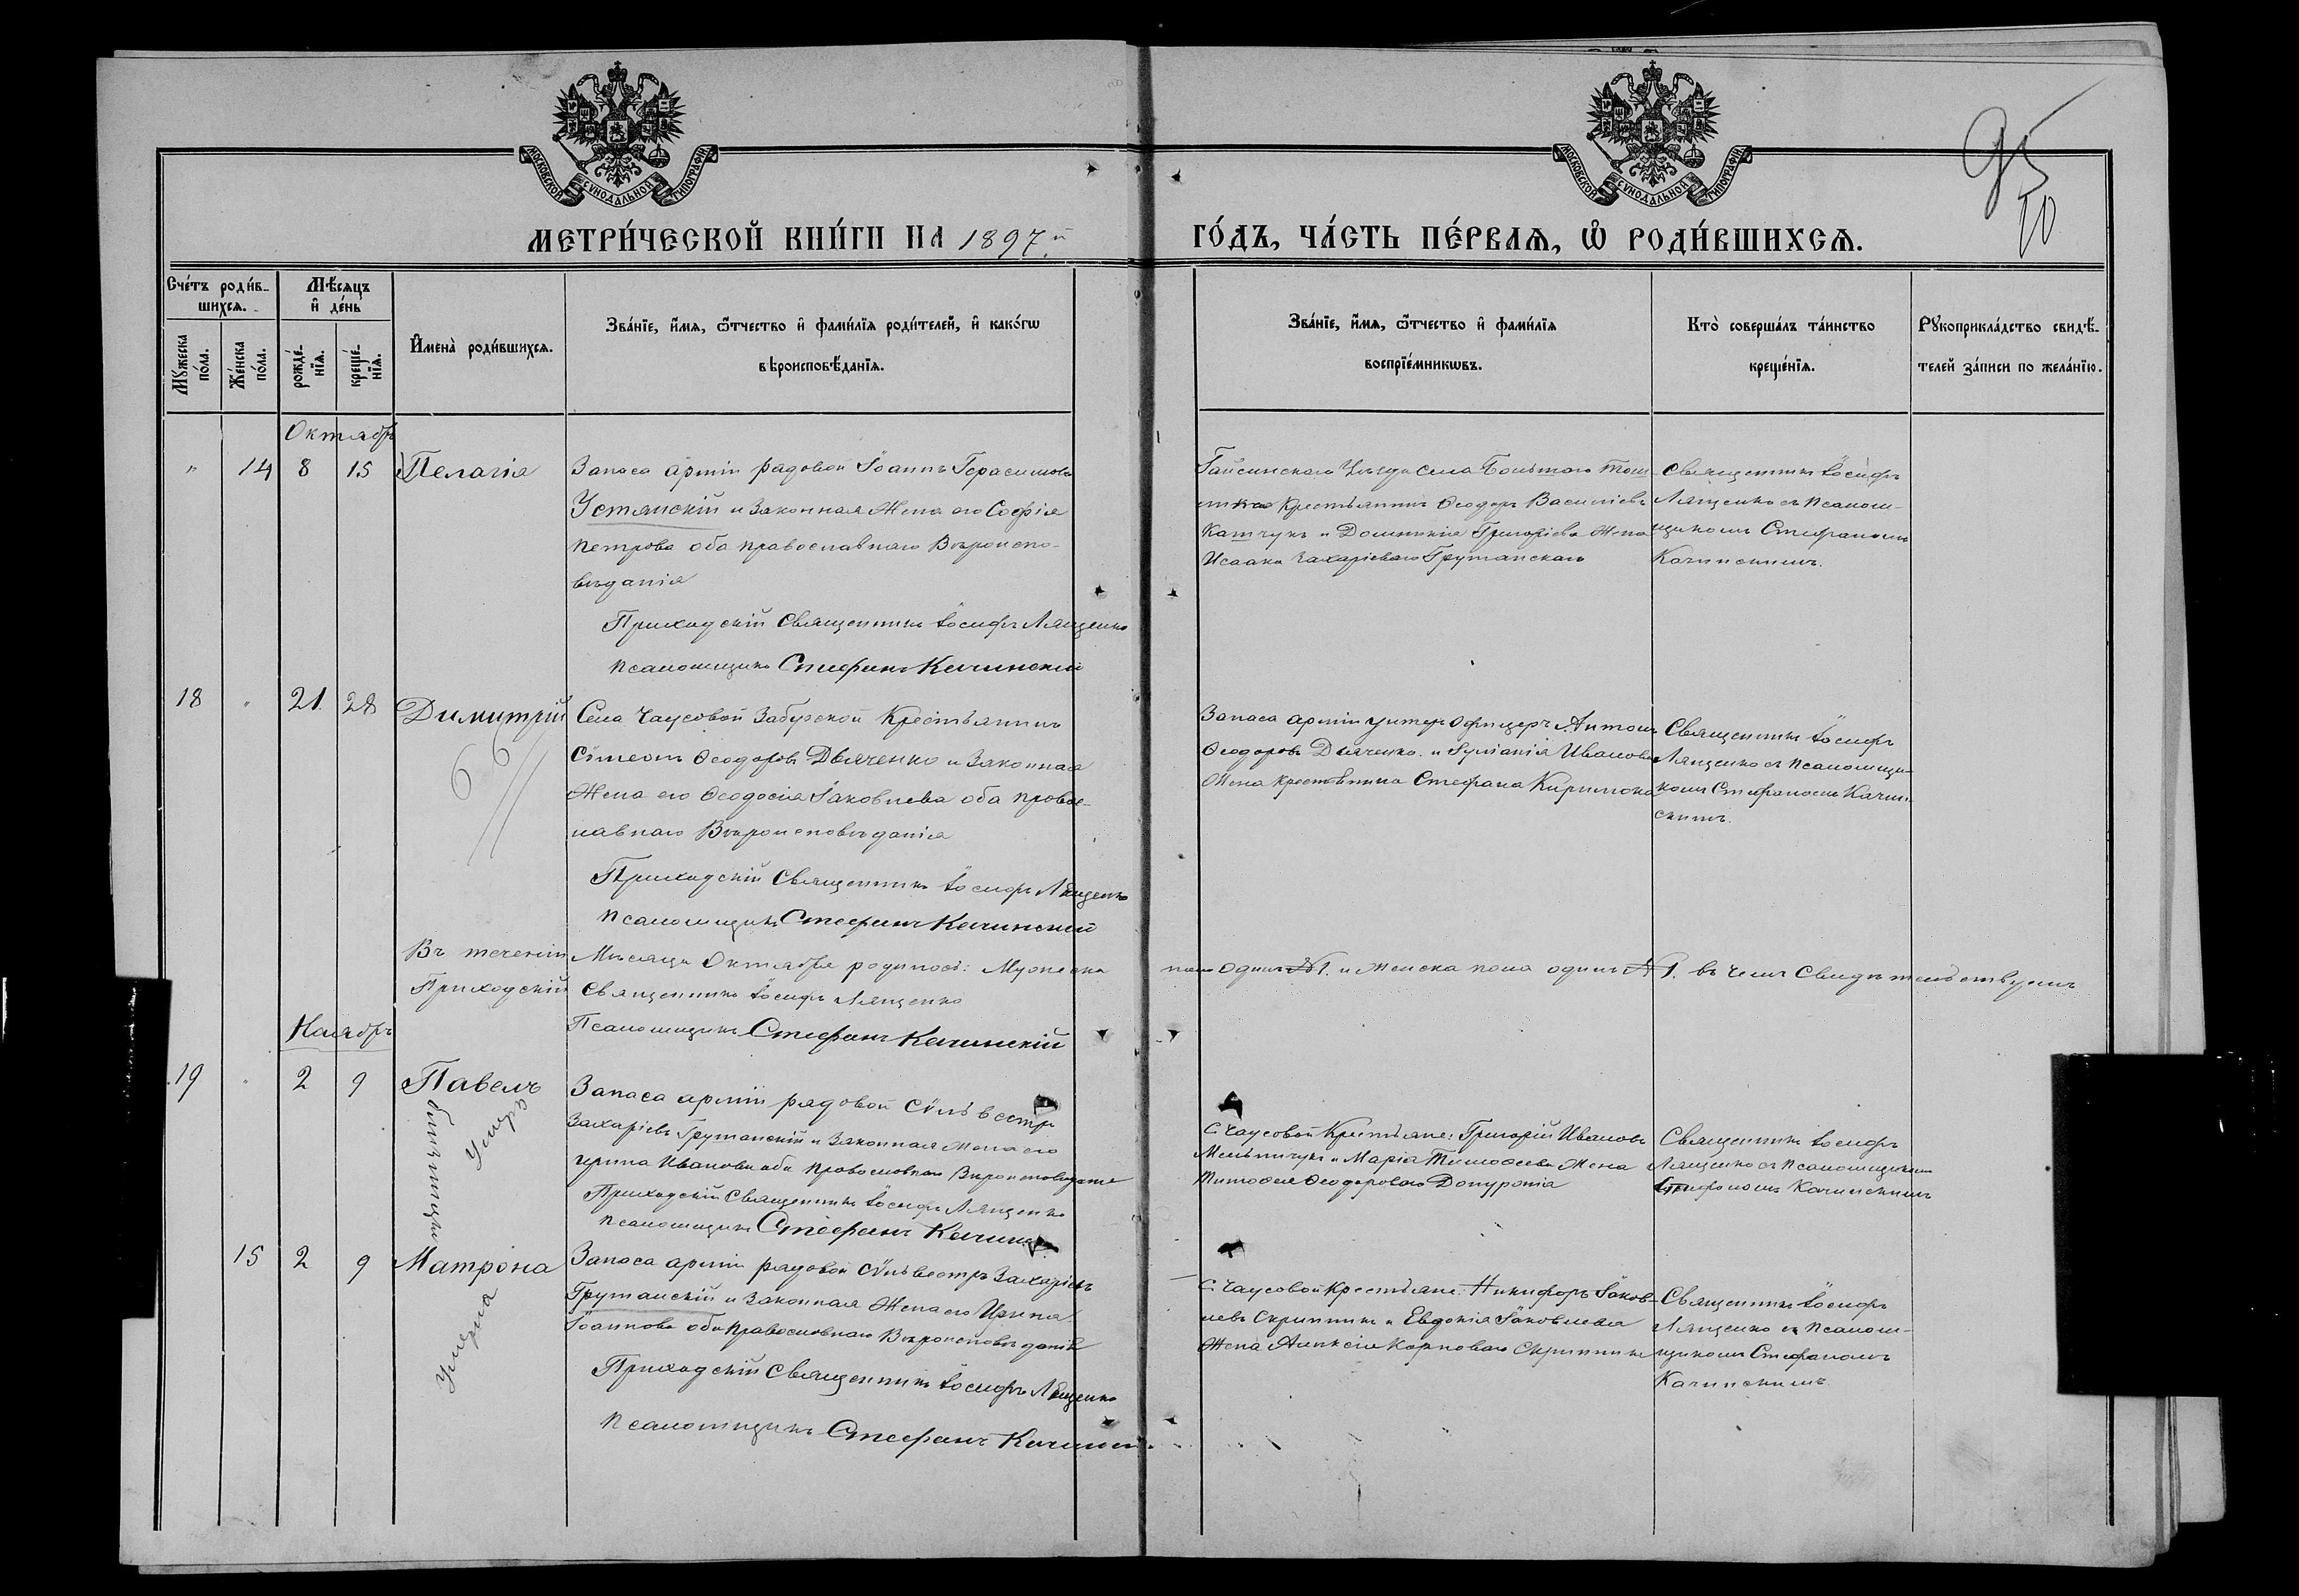 МОСКОВСКОЙ СѴНОДАЛЬНОЙ ТИПОГРАФІИ.
МОСКОВСКОЙ СѴНОДАЛЬНОЙ ТИПОГРАФІИ.
95
МЕТРИ́ЧЕСКОЙ КНИ́ГИ НА 1897.й
ГО́ДЪ, ЧА́СТЬ ПЕ́РВАѦ, Ѡ҆ РОДИ́ВШИХСѦ.
Сче́тъ роди́в-
шихсѧ.
Мѣ́сѧцъ
и҆ де́нь
Мꙋжеска по́ла.
Же́нска по́ла.
рожде́-
нїѧ.
креще́-
нїѧ.
И҆мена̀ роди́вшихсѧ.
Зва́нїе, и҆́мѧ, ѻ҆́тчество и҆ фами́лїѧ роди́телей, и҆ како́гѡ
вѣроисповѣ́данїѧ.
Зва́нїе, и҆́мѧ, ѻ҆́тчество и҆ фами́лїѧ
воспрїе́мникѡвъ.
Кто̀ соверша́лъ та́инство
креще́нїѧ.
Рꙋкоприкла́дство свидѣ́-
телей за́писи по жела́нїю.
Октябрь
" 14 8 15 Пелагія
Запаса арміи рядовой Іоаннъ Герасимовъ
Устянскій и Законная Жена его Софія
Петрова оба православнаго Вѣроиспо-
вѣданія
Приходскій Священникъ Іосифъ Лященко
Псаломщикъ Стефанъ Качинскій
Гайсинскаго Уѣзда села
Крестьянинъ Ѳеодоръ Василіевъ
и Домникія Григоріева Жена
Исаака Захаріеваго Грутанскаго
Священникъ Іосифъ
Лященко съ Псалом-
щикомъ Стефаномъ
Качинскимъ.
18 " 21 28 Димитрій
Села Чаусовой Забугской Крестьянинъ
Сѵмеонъ Ѳеодоровъ Дьяченко и Законная
Жена его Ѳеодосія Іаковлева оба правос-
лавнаго Вѣроисповѣданія
Приходскій Священникъ Іосифъ Лященко
Псаломщикъ Стефанъ Качинскій
Запаса арміи унтеръ офицеръ Антонъ
Ѳеодоровъ Дьяченко и Іуліанія Иванова
Жена крестьянина Стефана
Священникъ Іосифъ
Лященко съ Псаломщи-
комъ Стефаномъ Качин-
скимъ.
Въ теченіи Мѣсяца Октября родилось: Мужеска пола Одинъ №1. и Женска пола одинъ №1. въ чемъ Свидѣтельствуемъ
Приходскій Священникъ Іосифъ Лященко
Псаломщикъ Стефанъ Качинскій
Ноябрь
19 " 2 9 Павелъ
близнецы
Умеръ
Запаса арміи рядовой Сѵльвестръ
Захаріевъ Грутанскій и Законная Жена его
Ирина Иванова оба Православнаго Вѣроисповѣданія
Приходскій Священникъ Іосифъ Лященко
Псаломщикъ Стефанъ Качинск
С. Чаусовой Крестьяне: Григорій Ивановъ
Мельничукъ и Марія Тимоѳеева Жена
Тимоѳея Ѳеодороваго
Священникъ Іосифъ
Лященко съ Псаломщикомъ
Стефаномъ Качинскимъ
15 2 9 Матрона
Умерла
Запаса арміи рядовой Сѵльвестръ Захаріевъ
Грутанскій и Законная Жена его Ирина
Іоаннова оба Православнаго Вѣроисповѣданія
Приходскій Священникъ Іосифъ Лященко
Псаломщикъ Стефанъ Качинск
С. Чаусовой Крестьяне: Никифоръ Іаков-
левъ Скрипникъ и Евдокія Іаковлева
Жена Алексія Карповаго Скрипника
Священникъ Іосифъ
Лященко съ Псалом-
щикомъ Стефаномъ
Качинскимъ.